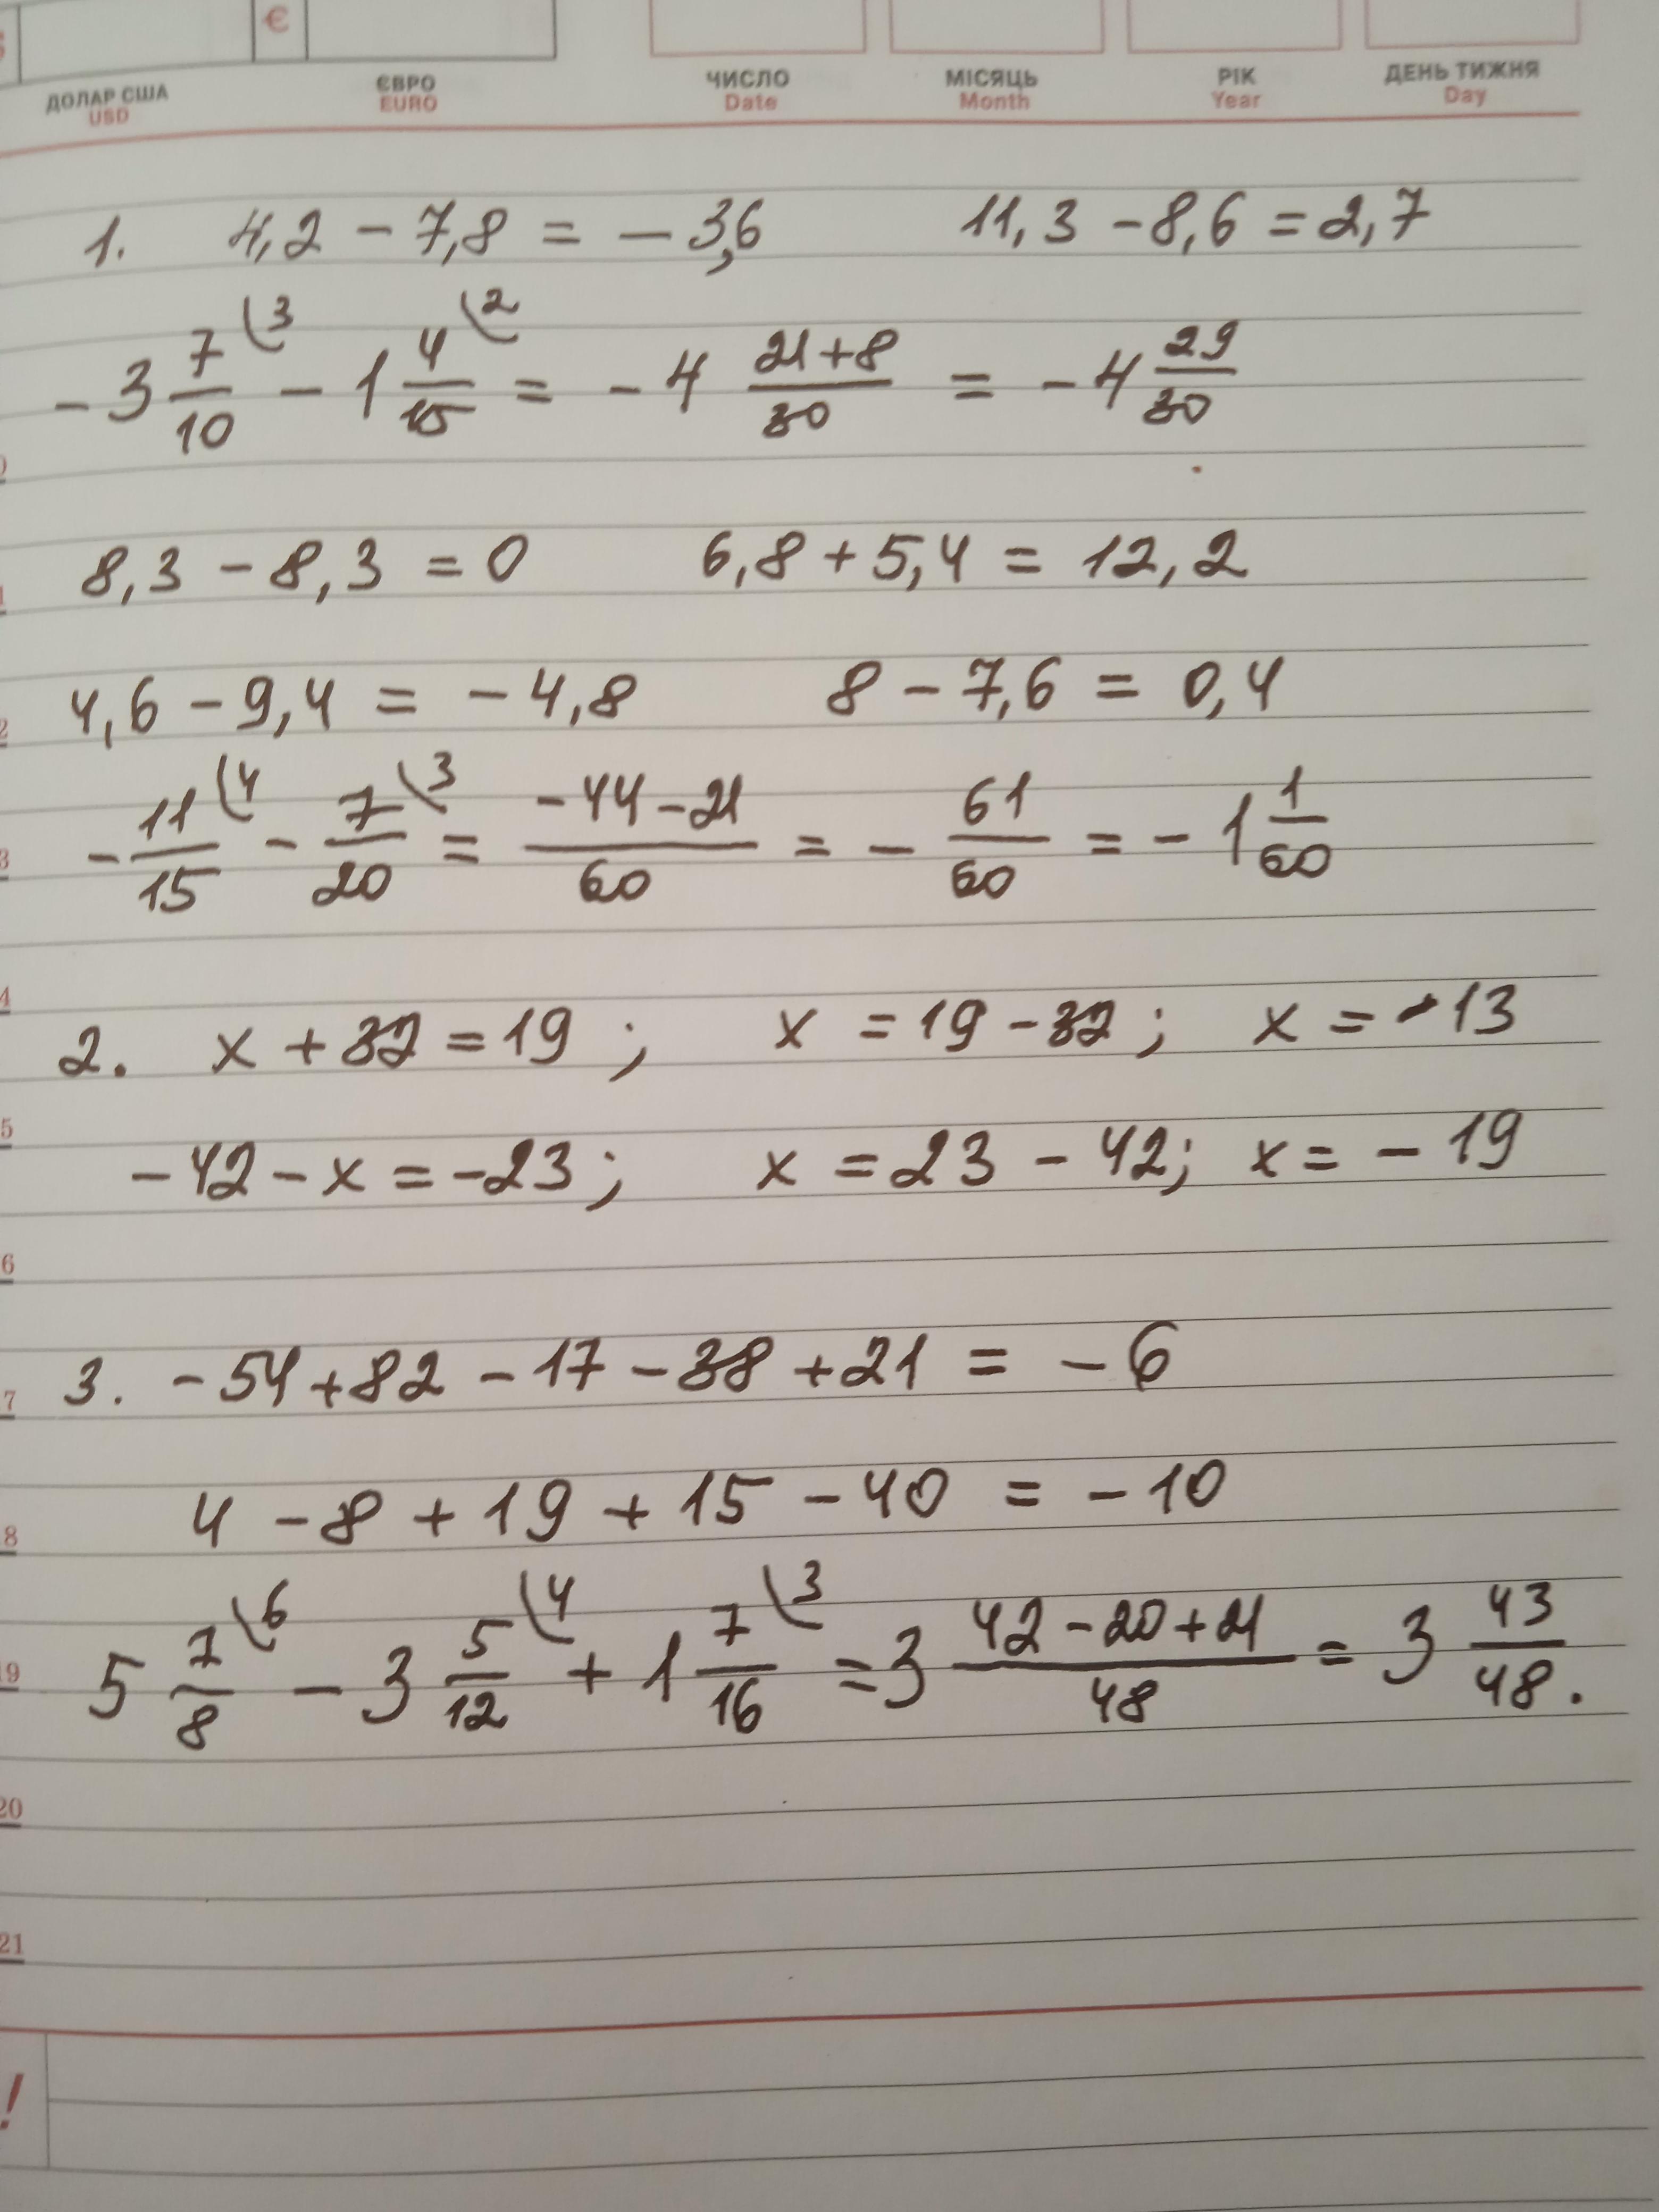 €
ДОЛАР США
USD
ЄВРО
EURO
ЧИСЛО
Date
МІСЯЦЬ
Month
РІК
Year
ДЕНЬ ТИЖНЯ
Day
1. 4,2 - 7,8 = - 3,6 11,3 - 8,6 = 2,7
- 3 7/10 \3 - 1 4/15 \2 = - 4 (21+8)/30 = - 4 29/30
8,3 - 8,3 = 0 6,8 + 5,4 = 12,2
4,6 - 9,4 = - 4,8 8 - 7,6 = 0,4
- 11/15 \4 - 7/20 \3 = (-44-21)/60 = - 61/60 = - 1 1/60
2. x + 32 = 19 ; x = 19 - 32 ; x = - 13
- 42 - x = -23 ; x = 23 - 42; x = - 19
3. - 54 + 82 - 17 - 38 + 21 = - 6
4 - 8 + 19 + 15 - 40 = - 10
5 7/8 \6 - 3 5/12 \4 + 1 7/16 \3 = 3 (42-20+21)/48 = 3 43/48 .
20
21
!